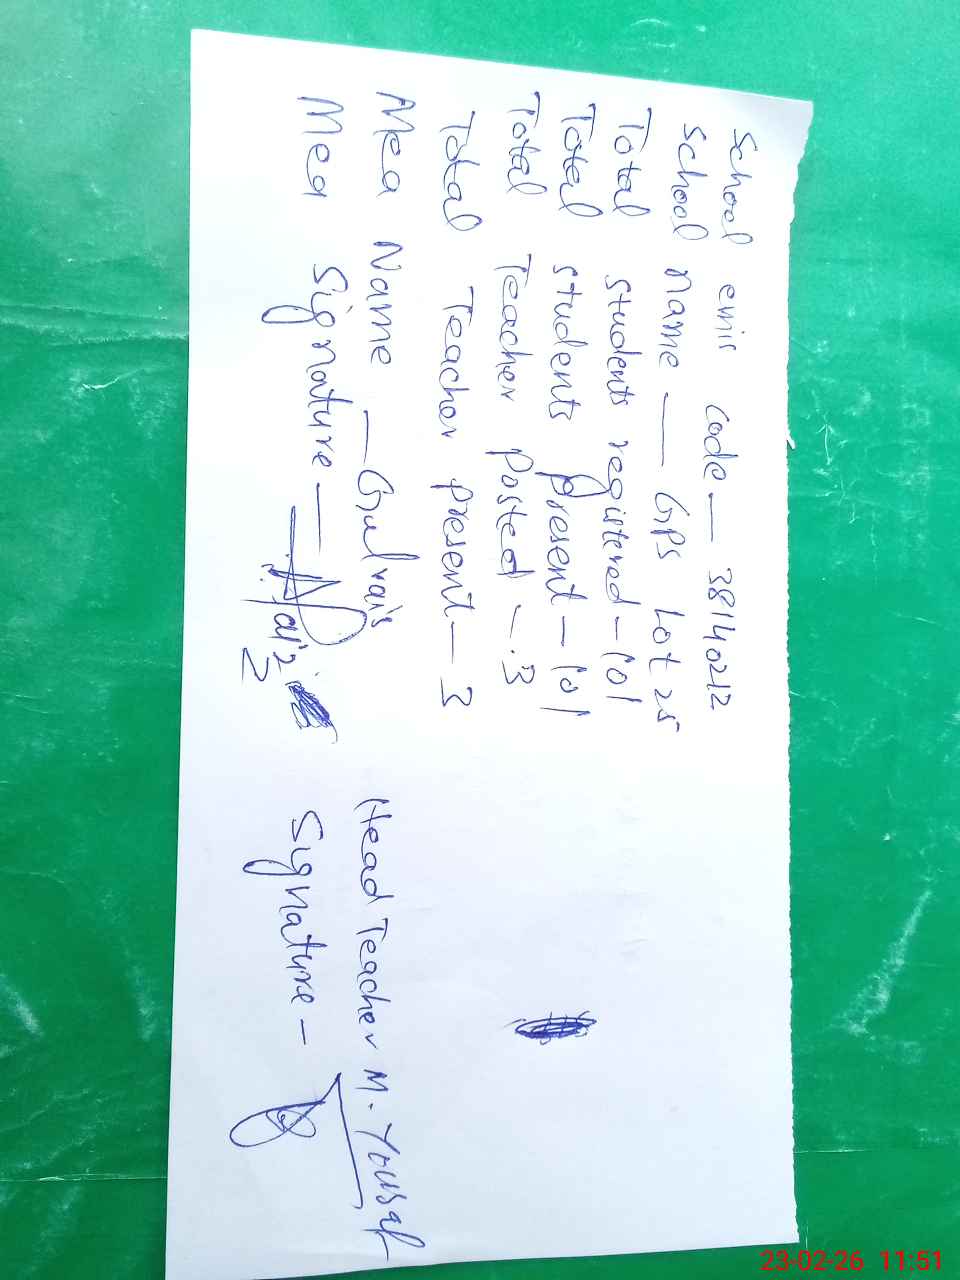 School emis code — 38140212
School name — GPS Lot 25
Total students registered - 101
Total students present - 101
Total Teacher posted - 3
Total Teacher present - 3
Mea Name — Gulrais
Mea Signature —
Head Teacher M. Yousaf
Signature -
23-02-26 11:51